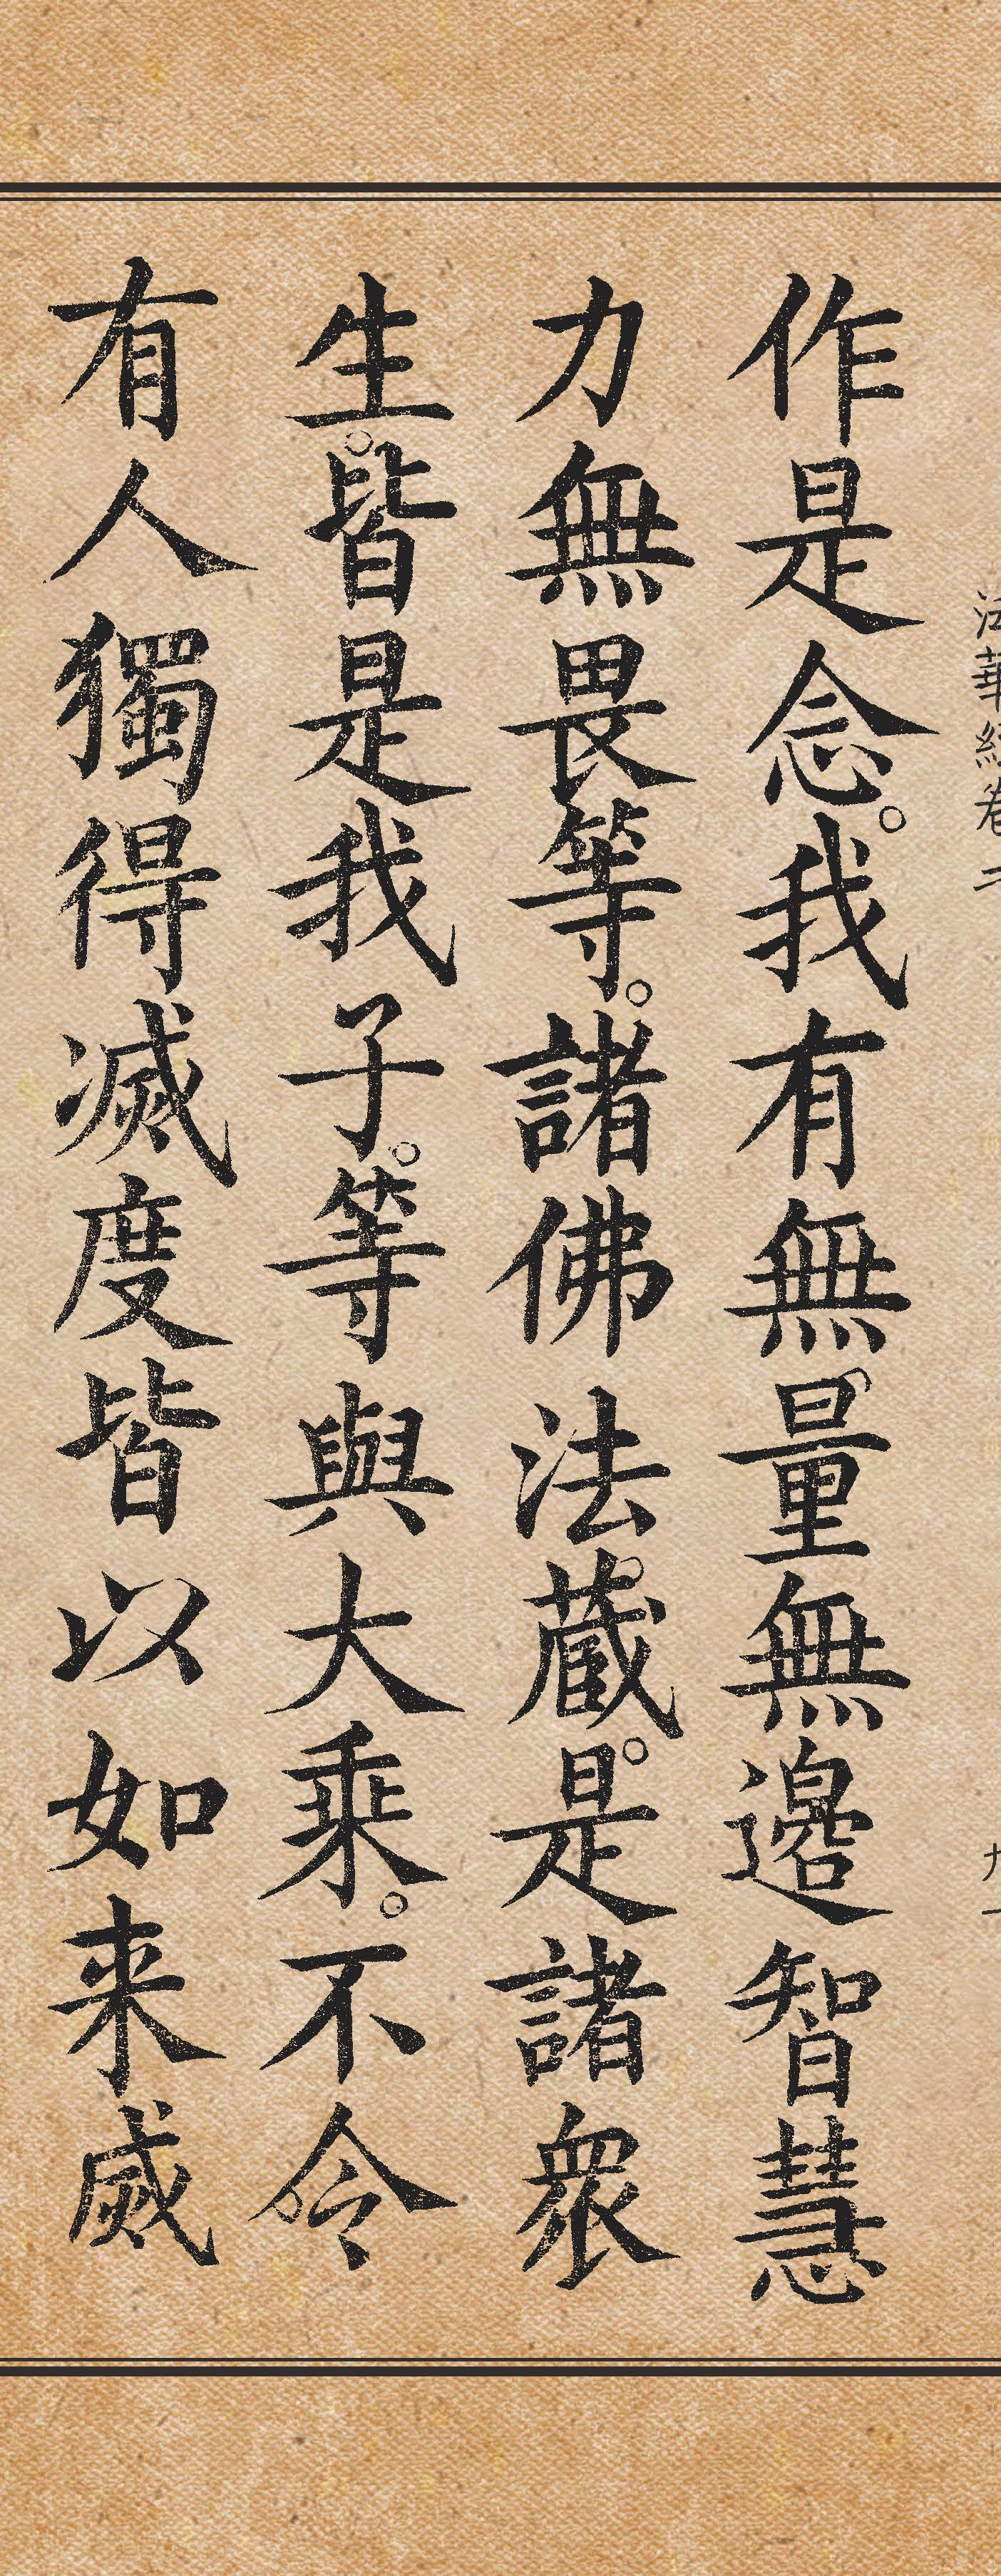 法華經卷二
九十
作是念。我有無量無邊智慧
力無畏等。諸佛法蔵。是諸衆
生。皆是我子。等與大乗。不令
有人獨得滅度皆以如来滅